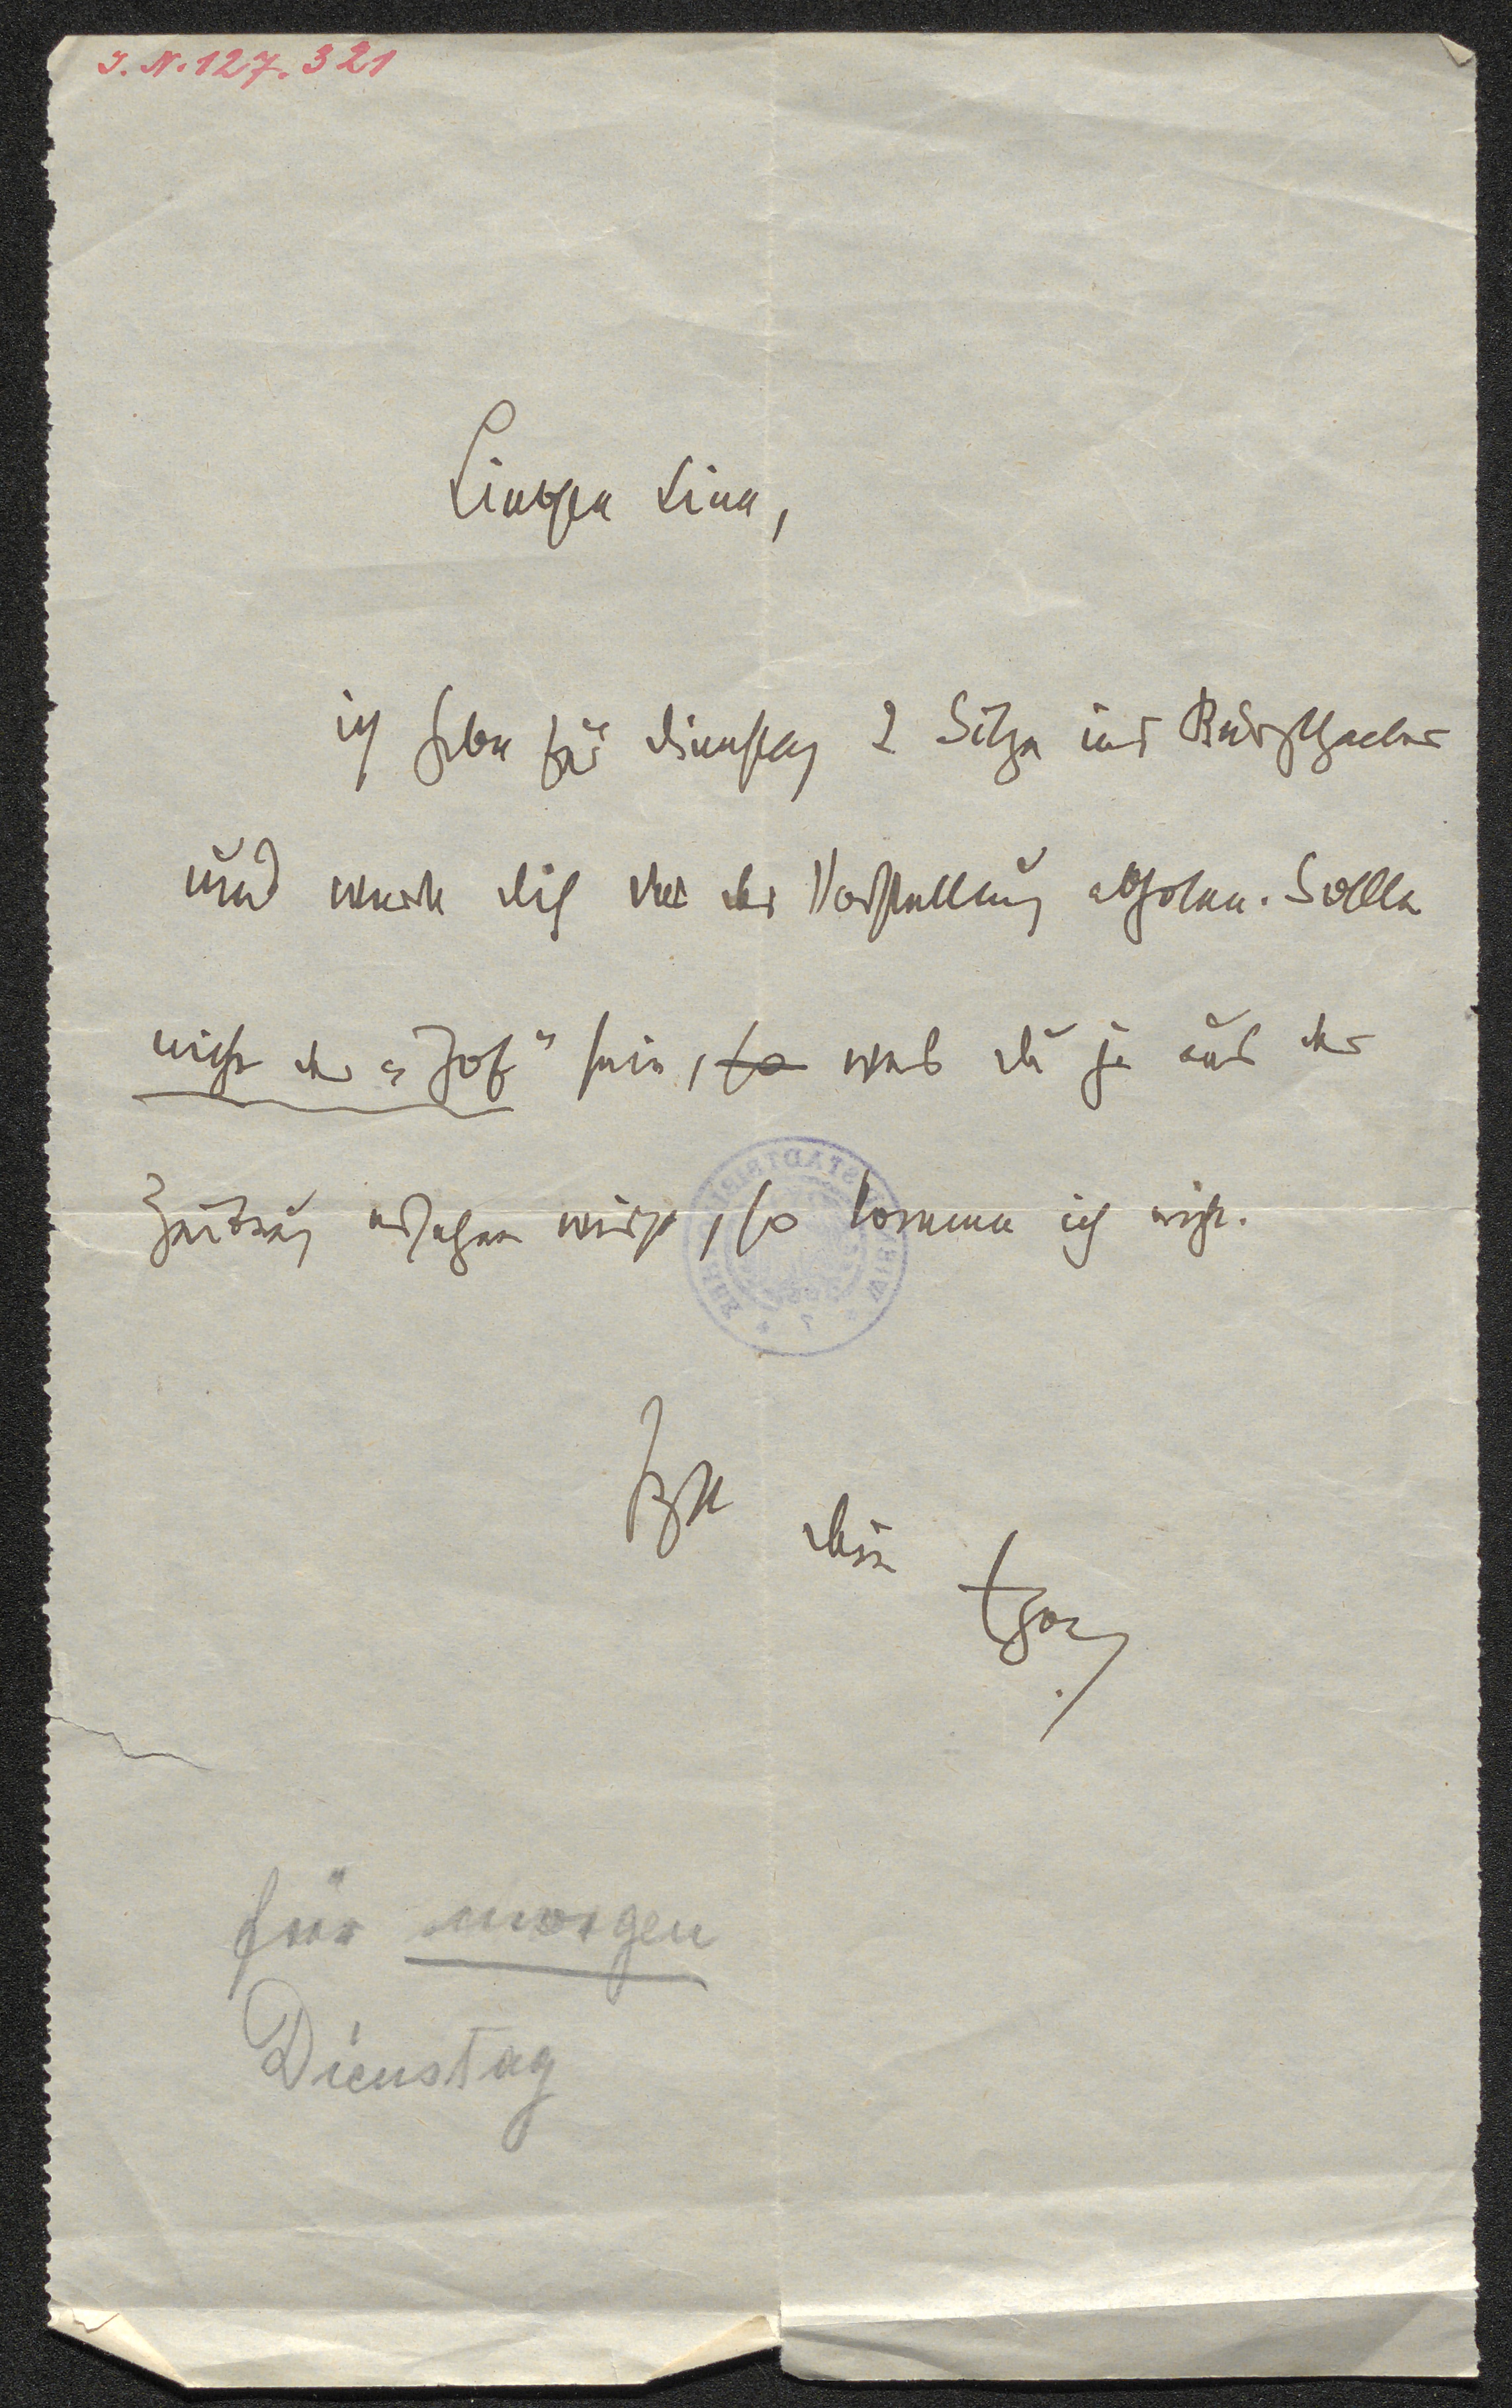 J. N. 127.321
Liebste Lina,
ich habe für Dienstag 2 Sitze ins Burgtheater
und werde dich vor der Vorstellung abholen. Sollte
nicht der sein, so was du ja aus der
Zeitung ersehen wirst, so komme ich nicht.
dein Egon
für morgen
Dienstag